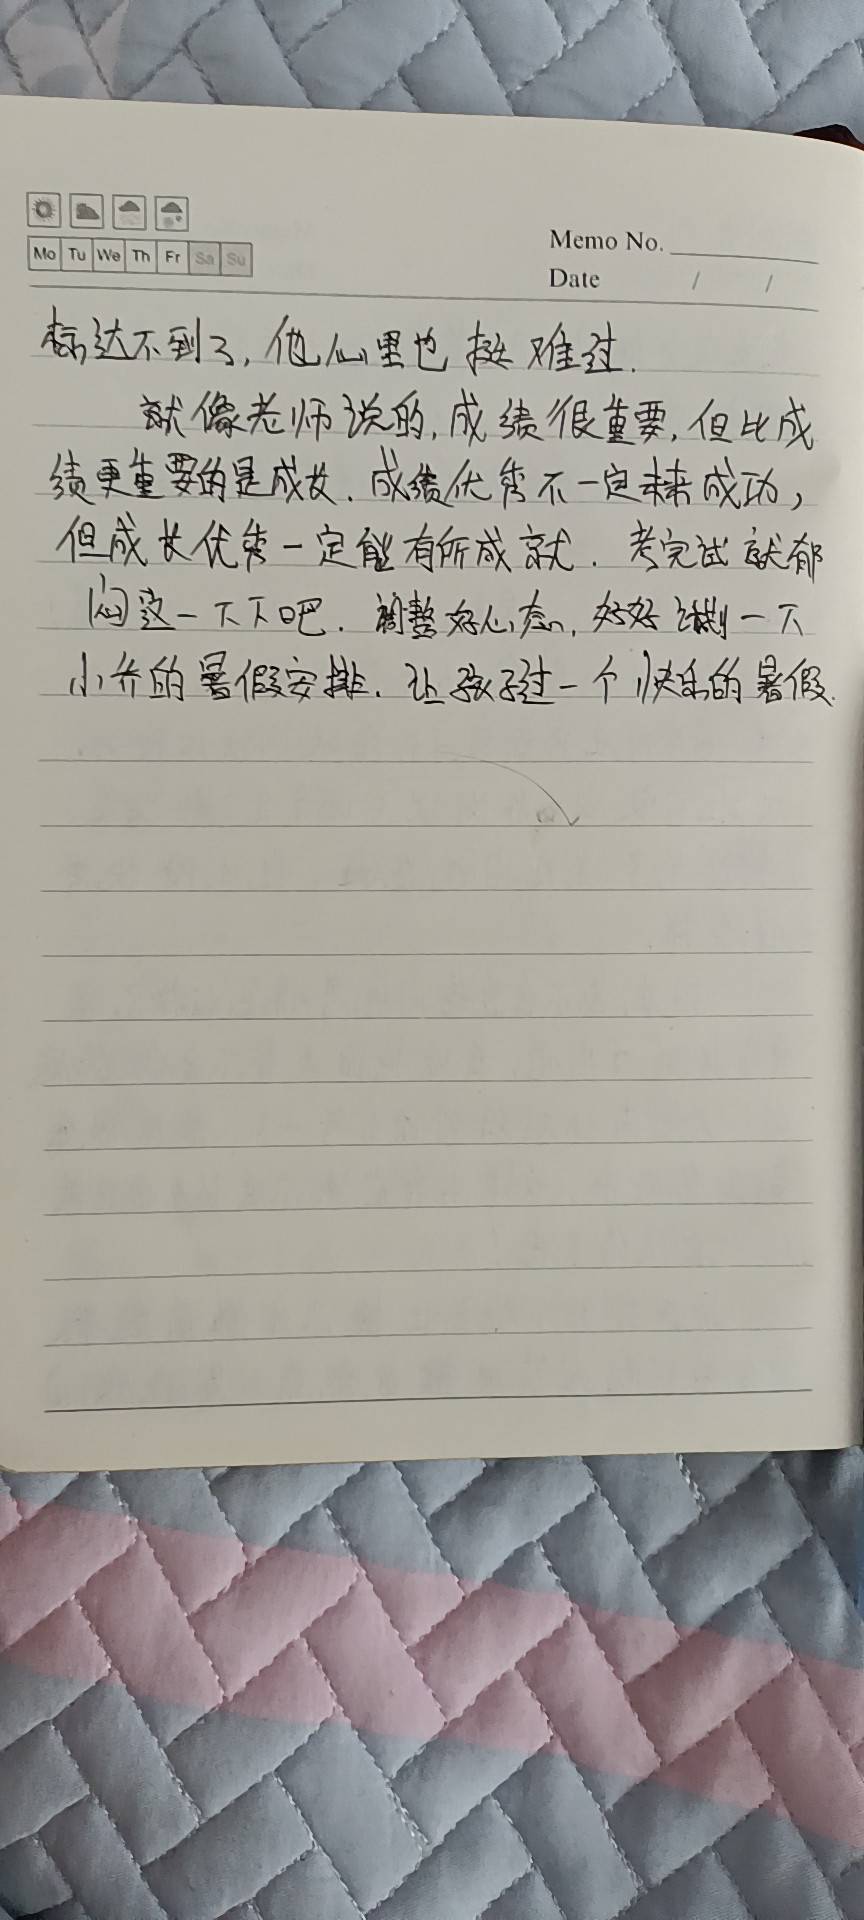 Mo Tu We Th Fr Sa Su
Memo No.
Date / /
标达不到了,他心里也挺难过.
就像老师说的,成绩很重要,但比成
绩更重要的是成长.成绩优秀不一定未来成功,
但成长优秀一定能有所成就.考完试就郁
闷这一下下吧.调整好心态,好好计划一下
小乔的暑假安排.让孩子过一个快乐的暑假.